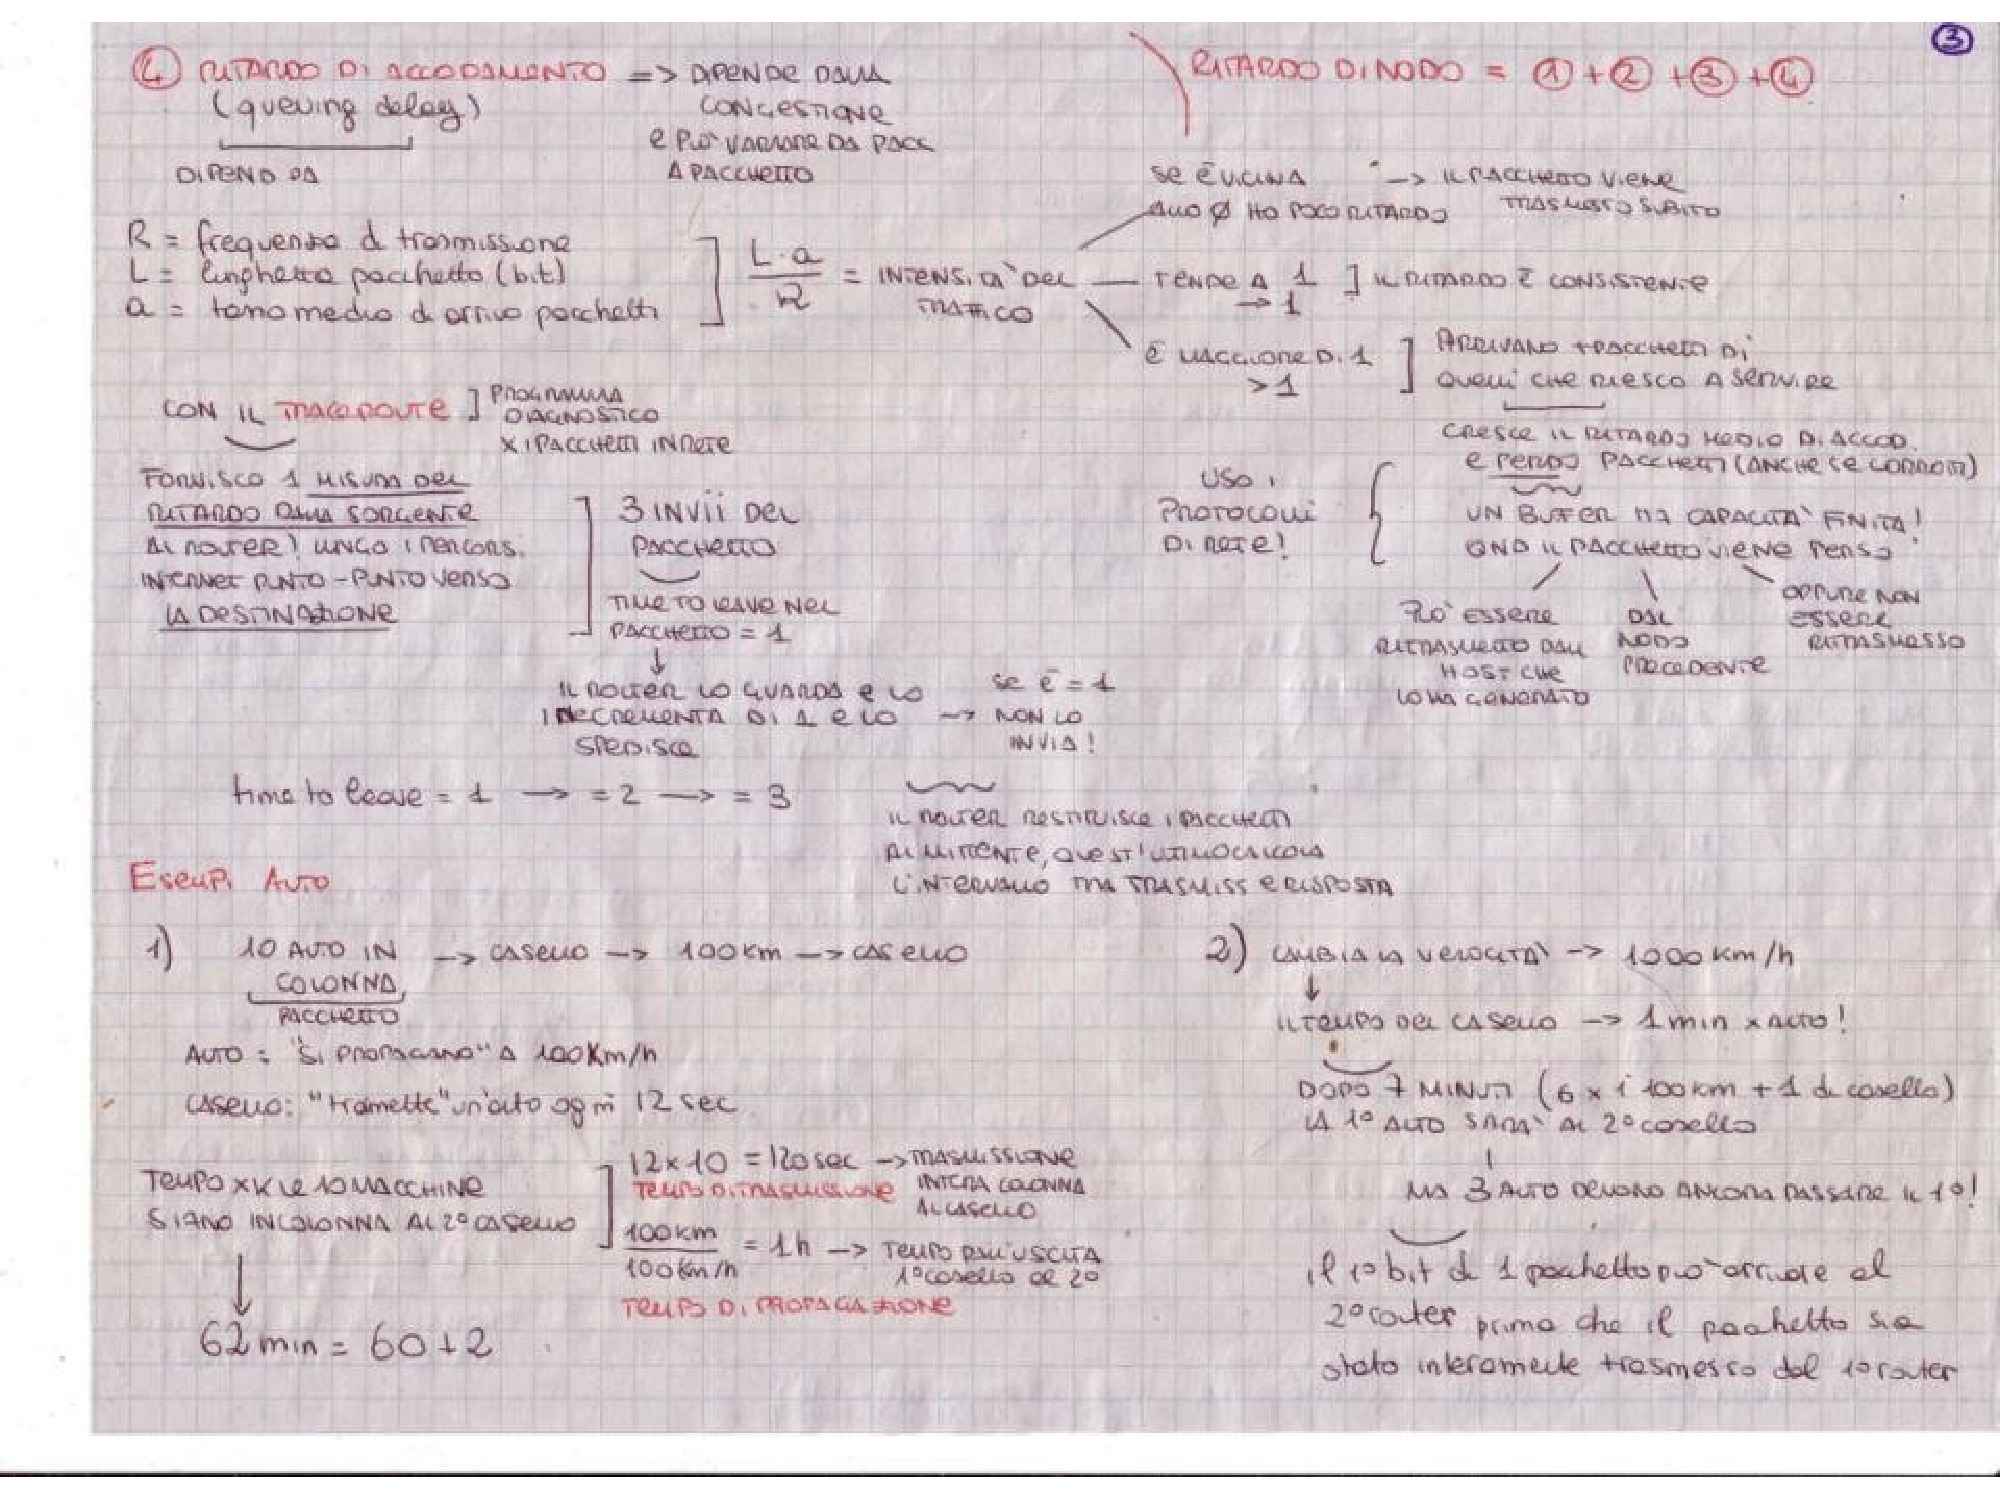 3
4 RITARDO DI ACCODAMENTO => DIPENDE DALLA
(queuing delay)
CONGESTIONE
E PUO' VARIARE DA PACC
A PACCHETTO
DIPEND DA
RITARDO DI NODO = 1 + 2 + 3 + 4
R = frequenza di trasmissione
L = lunghezza pacchetto (bit)
a = tasso medio di arrivo pacchetti
L·a / R = INTENSITA' DEL
TRAFFICO
SE È VICINA
ALLO Ø HO POCO RITARDO
-> IL PACCHETTO VIENE
TRASMESSO SUBITO
TENDE A 1 ] IL RITARDO È CONSISTENTE
-> 1
È MAGGIORE DI 1
> 1
ARRIVANO + PACCHETTI DI
QUELLI CHE RIESCO A SERVIRE
CRESCE IL RITARDO MEDIO DI ACCOD.
E PERDO PACCHETTI (ANCHE SE CORROTTI)
USO I
PROTOCOLLI
DI RETE!
UN BUFER HA CAPACITA' FINITA!
QND IL PACCHETTO VIENE PERSO
PUO' ESSERE
RITRASMESSO DALL
HOST CHE
LO HA GENERATO
DAL
NODO
PRECEDENTE
OPPURE NON
ESSERE
RITRASMESSO
CON IL TRACEROUTE ] PROGRAMMA
DIAGNOSTICO
X I PACCHETTI IN RETE
FORNISCO 1 MISURA DEL
RITARDO DALLA SORGENTE
AI ROUTER LUNGO I PERCORSI
INTERNET PUNTO-PUNTO VERSO
LA DESTINAZIONE
3 INVII DEL
PACCHETTO
TIME TO LEAVE NEL
PACCHETTO = 1
IL ROUTER LO GUARDA E LO
DECREMENTA DI 1 E LO
SPEDISCE
SE È = 1
-> NON LO
INVIA!
time to leave = 1 -> = 2 -> = 3
IL ROUTER RESTITUISCE I PACCHETTI
AL MITTENTE, QUEST'ULTIMO CALCOLA
L'INTERVALLO TRA TRASMISS E RISPOSTA
ESEMPI AUTO
1) 10 AUTO IN
COLONNA
-> CASELLO -> 100 km -> CASELLO
PACCHETTO
AUTO: "SI PROPAGANO" A 100 Km/h
CASELLO: "trasmette" un'auto ogni 12 sec
TEMPO XKÈ LE 10 MACCHINE
SIANO IN COLONNA AL 2° CASELLO
62 min = 60 + 2
12 x 10 = 120 sec -> TRASMISSIONE
INTERA COLONNA
AL CASELLO
TEMPO DI TRASMISSIONE
100 km / 100 Km/h = 1 h -> TEMPO DALL'USCITA
1° casello al 2°
TEMPO DI PROPAGAZIONE
2) CAMBIA LA VELOCITA' -> 1000 Km/h
IL TEMPO DEL CASELLO -> 1 min x AUTO!
DOPO 7 MINUTI (6 x i 100 km + 1 di casello)
LA 1° AUTO SARA' AL 2° casello
MA 3 AUTO DEVONO ANCORA PASSARE IL 1°!
il 1° bit di 1 pacchetto può arrivare al
2° router prima che il pacchetto sia
stato interamente trasmesso dal 1° router